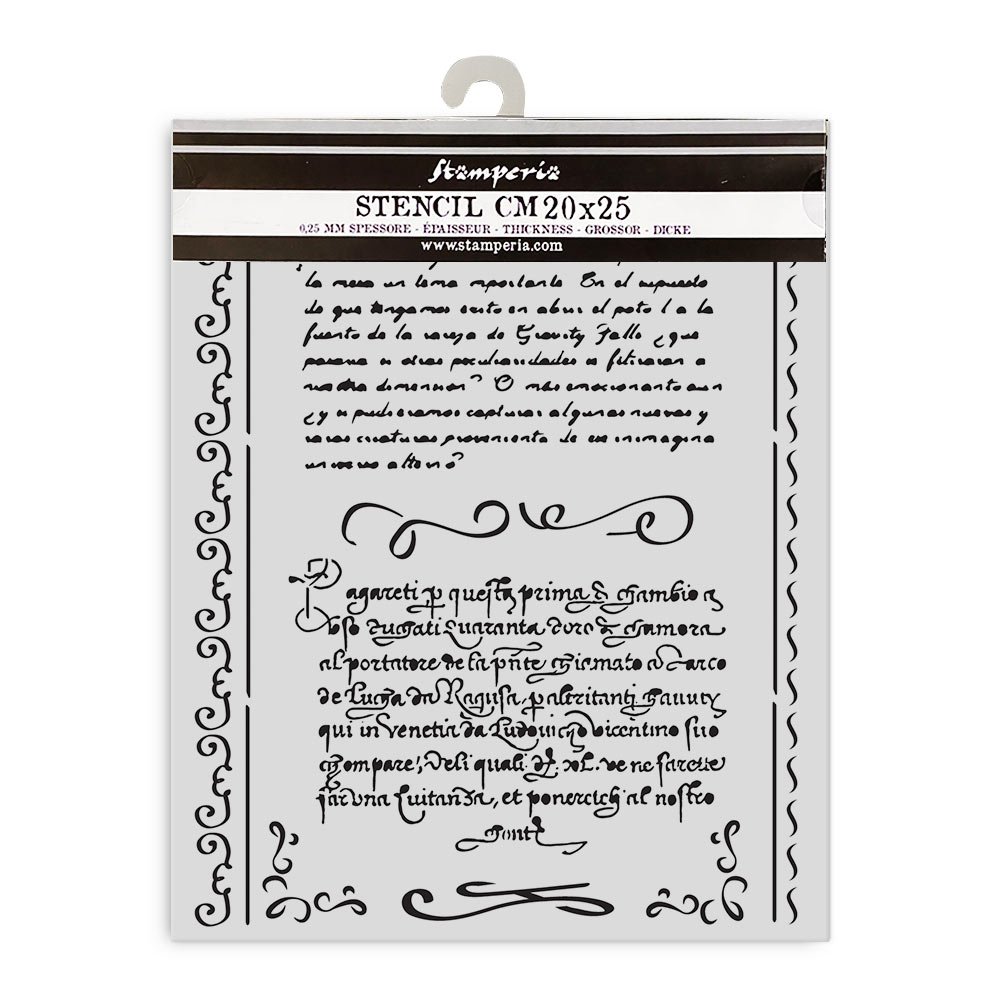 Stamperia
STENCIL CM 20x25
0,25 MM SPESSORE - ÉPAISSEUR - THICKNESS - GROSSOR - DICKE
www.stamperia.com
la mesa un tema mportante En el supuesto
de que tengamos exito en abrir el
fuerte de la de Gravity Falls ¿que
o otras peculiaridades se filtraran a
dimension? O mas emocionante aun
¿y si pudieramos capturar algunas nuevas y
raras criaturas proveniente de
universo
Pagareti p questa prima d chambio a
duchati Quaranta doro d chamora
al portatore de la pnte chiamato Marco
de Lucha da Ragusa, p altritanti hauuty
qui in venetia da Ludovicho vicentino suo
chompare, Deli quali d. xl. ve ne farette
far vna Quitanza, et ponercieh al nostro
Contt